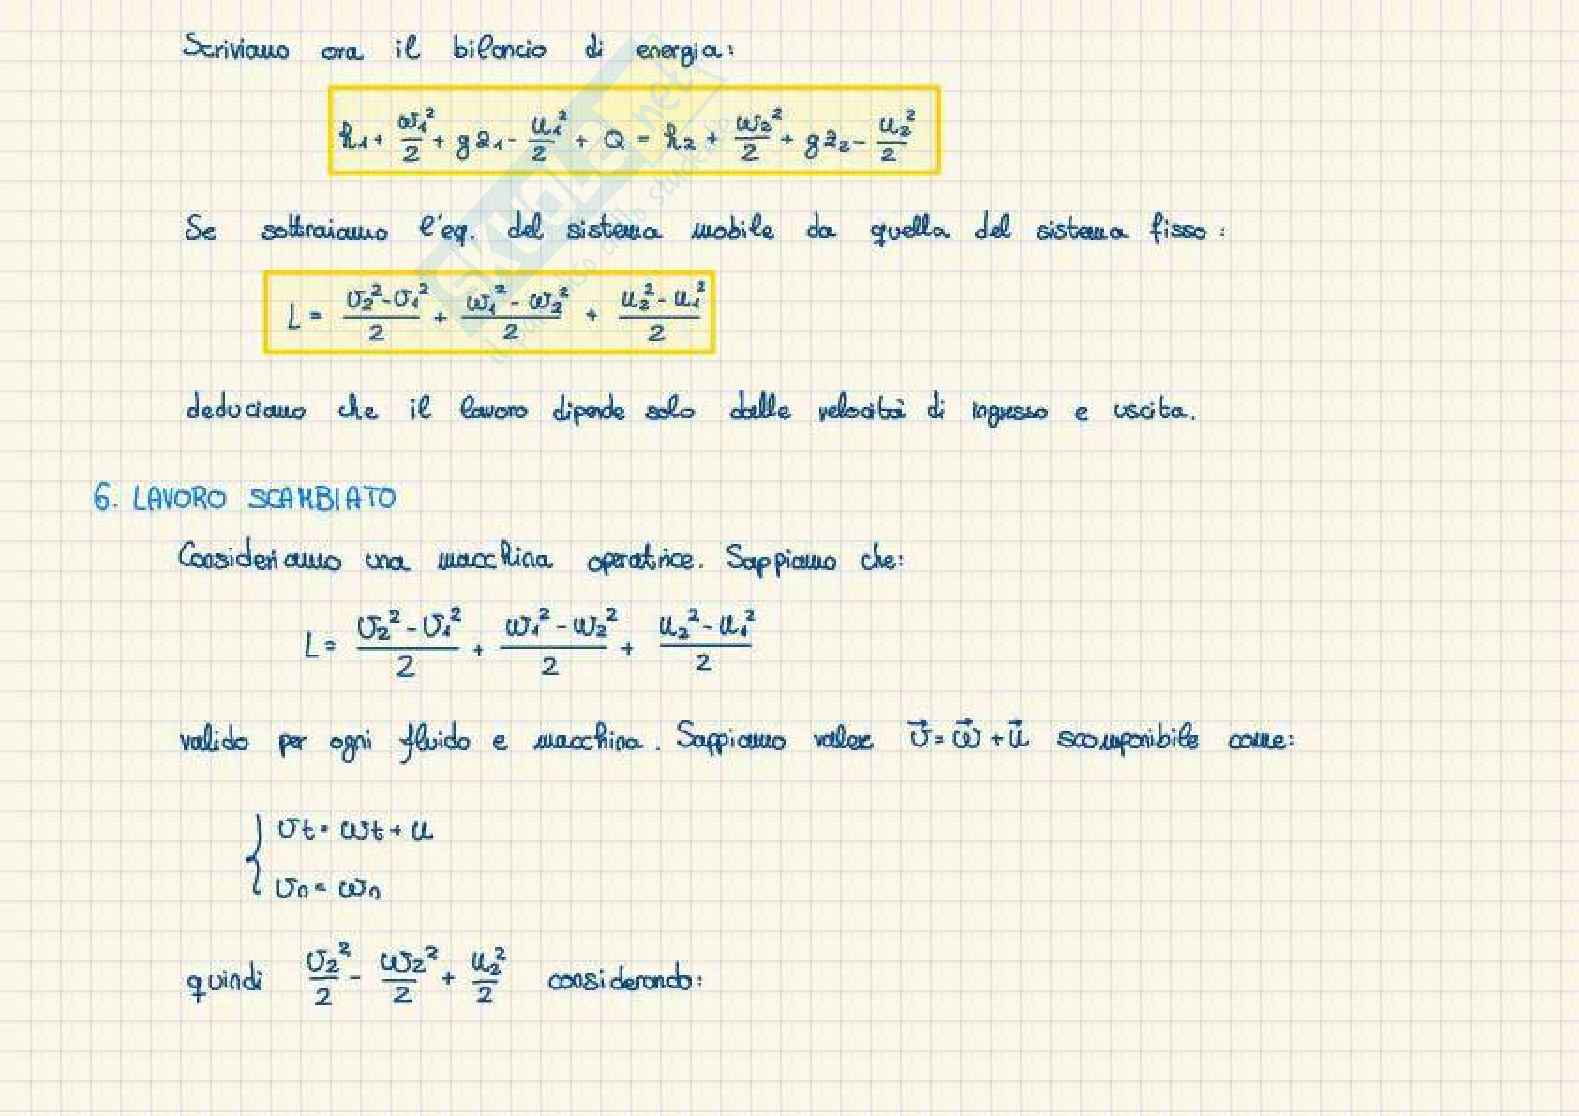 Scriviamo ora il bilancio di energia:
h₁ + w₁²/2 + gz₁ - u₁²/2 + Q = h₂ + w₂²/2 + gz₂ - u₂²/2
Se sottraiamo l'eq. del sistema mobile da quella del sistema fisso:
L = (v₂² - v₁²)/2 + (w₁² - w₂²)/2 + (u₂² - u₁²)/2
deduciamo che il lavoro dipende solo dalle velocità di ingresso e uscita.
6. LAVORO SCAMBIATO
Consideriamo una macchina operatrice. Sappiamo che:
L = (v₂² - v₁²)/2 + (w₁² - w₂²)/2 + (u₂² - u₁²)/2
valido per ogni fluido e macchina. Sappiamo valer v⃗ = w⃗ + u⃗ scomponibile come:
{ vt = wt + u
vn = wn
quindi v₂²/2 - w₂²/2 + u₂²/2 considerando:
SKUOLA.net
il paradiso dello studente